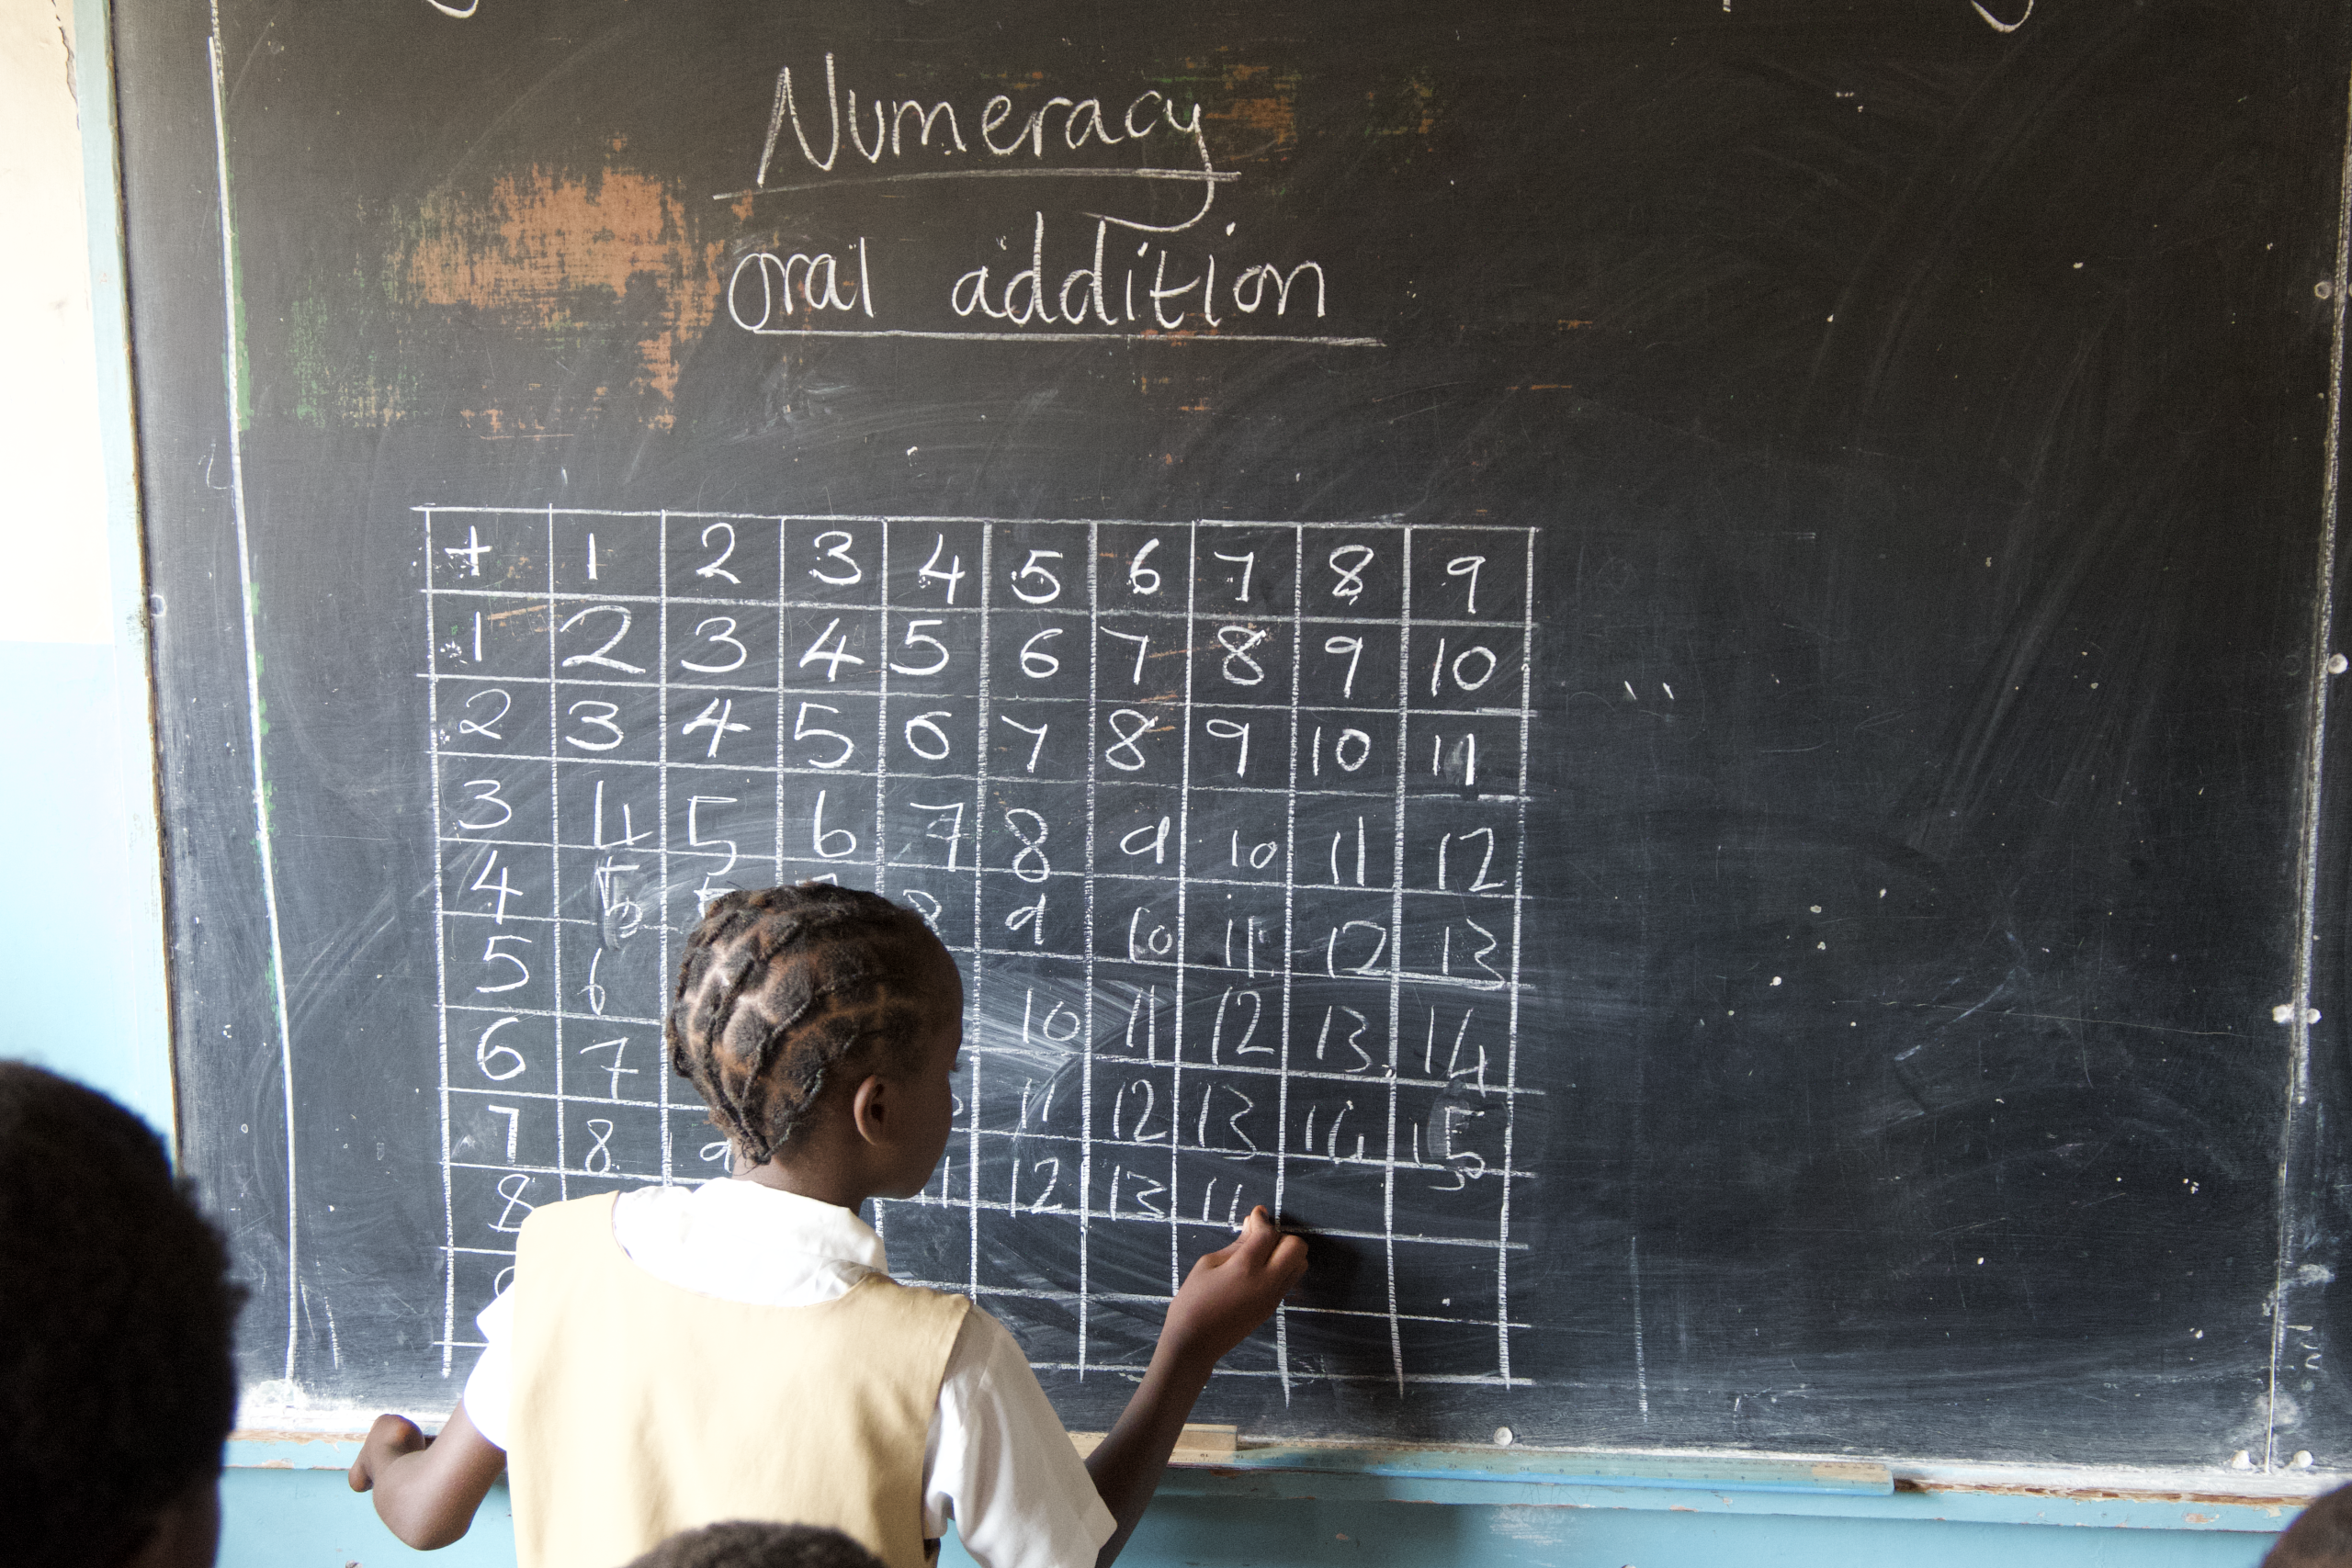 Numeracy
oral addition
+ 1 2 3 4 5 6 7 8 9
1 2 3 4 5 6 7 8 9 10
2 3 4 5 6 7 8 9 10 11
3 4 5 6 7 8 9 10 11 12
4 5 8 9 10 11 12 13
5 6 10 11 12 13 14
6 7 11 12 13 14 15
7 8 9 11 12 13 14
8